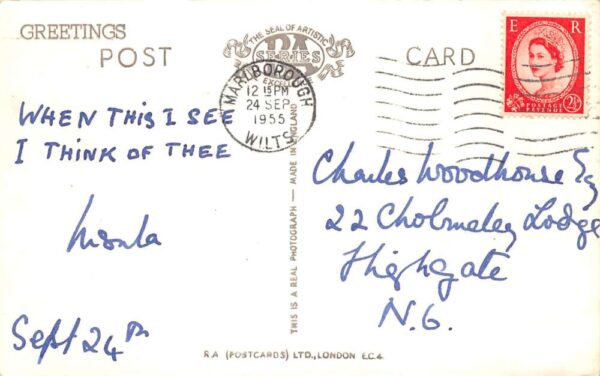 GREETINGS
POST CARD
THE SEAL OF ARTISTIC
RA
SERIES
EXCEL
MARLBOROUGH
12 15PM
24 SEP
1955
WILTS
E R
POSTAGE
REVENUE
2½D
WHEN THIS I SEE
I THINK OF THEE
Sept 24th
THIS IS A REAL PHOTOGRAPH — MADE IN ENGLAND
Charles Woodhouse Esq
22 Cholmeley Lodge
Highgate
N.6.
R.A (POSTCARDS) LTD., LONDON E.C.4